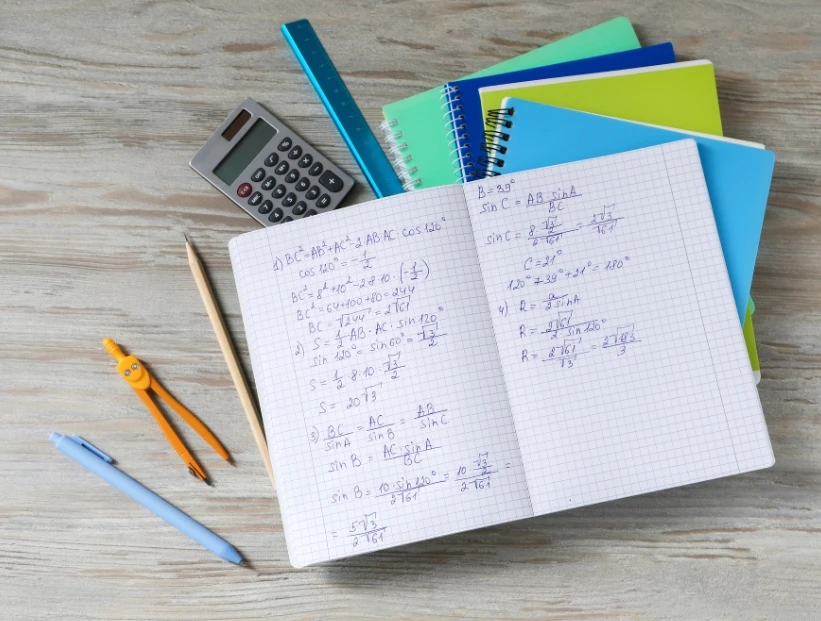 1) BC² = AB² + AC² - 2 AB·AC · cos 120°
cos 120° = - 1/2
BC² = 8² + 10² - 2·8·10 · (-1/2)
BC² = 64 + 100 + 80 = 244
BC = √244 = 2√61
2) S = 1/2 AB · AC · sin 120°
sin 120° = sin 60° = √3/2
S = 1/2 · 8 · 10 · √3/2
S = 20√3
3) BC/sin A = AC/sin B = AB/sin C
sin B = AC · sin A/BC
sin B = 10 · sin 120°/2√61 = 10 √3/2/2√61 =
= 5√3/2√61
B = 39°
sin C = AB · sin A/BC
sin C = 8 √3/2/2√61 = 2√3/√61
C = 21°
120° + 39° + 21° = 180°
4) R = a/2 sin A
R = 2√61/2 sin 120°
R = 2√61/√3 = 2√183/3